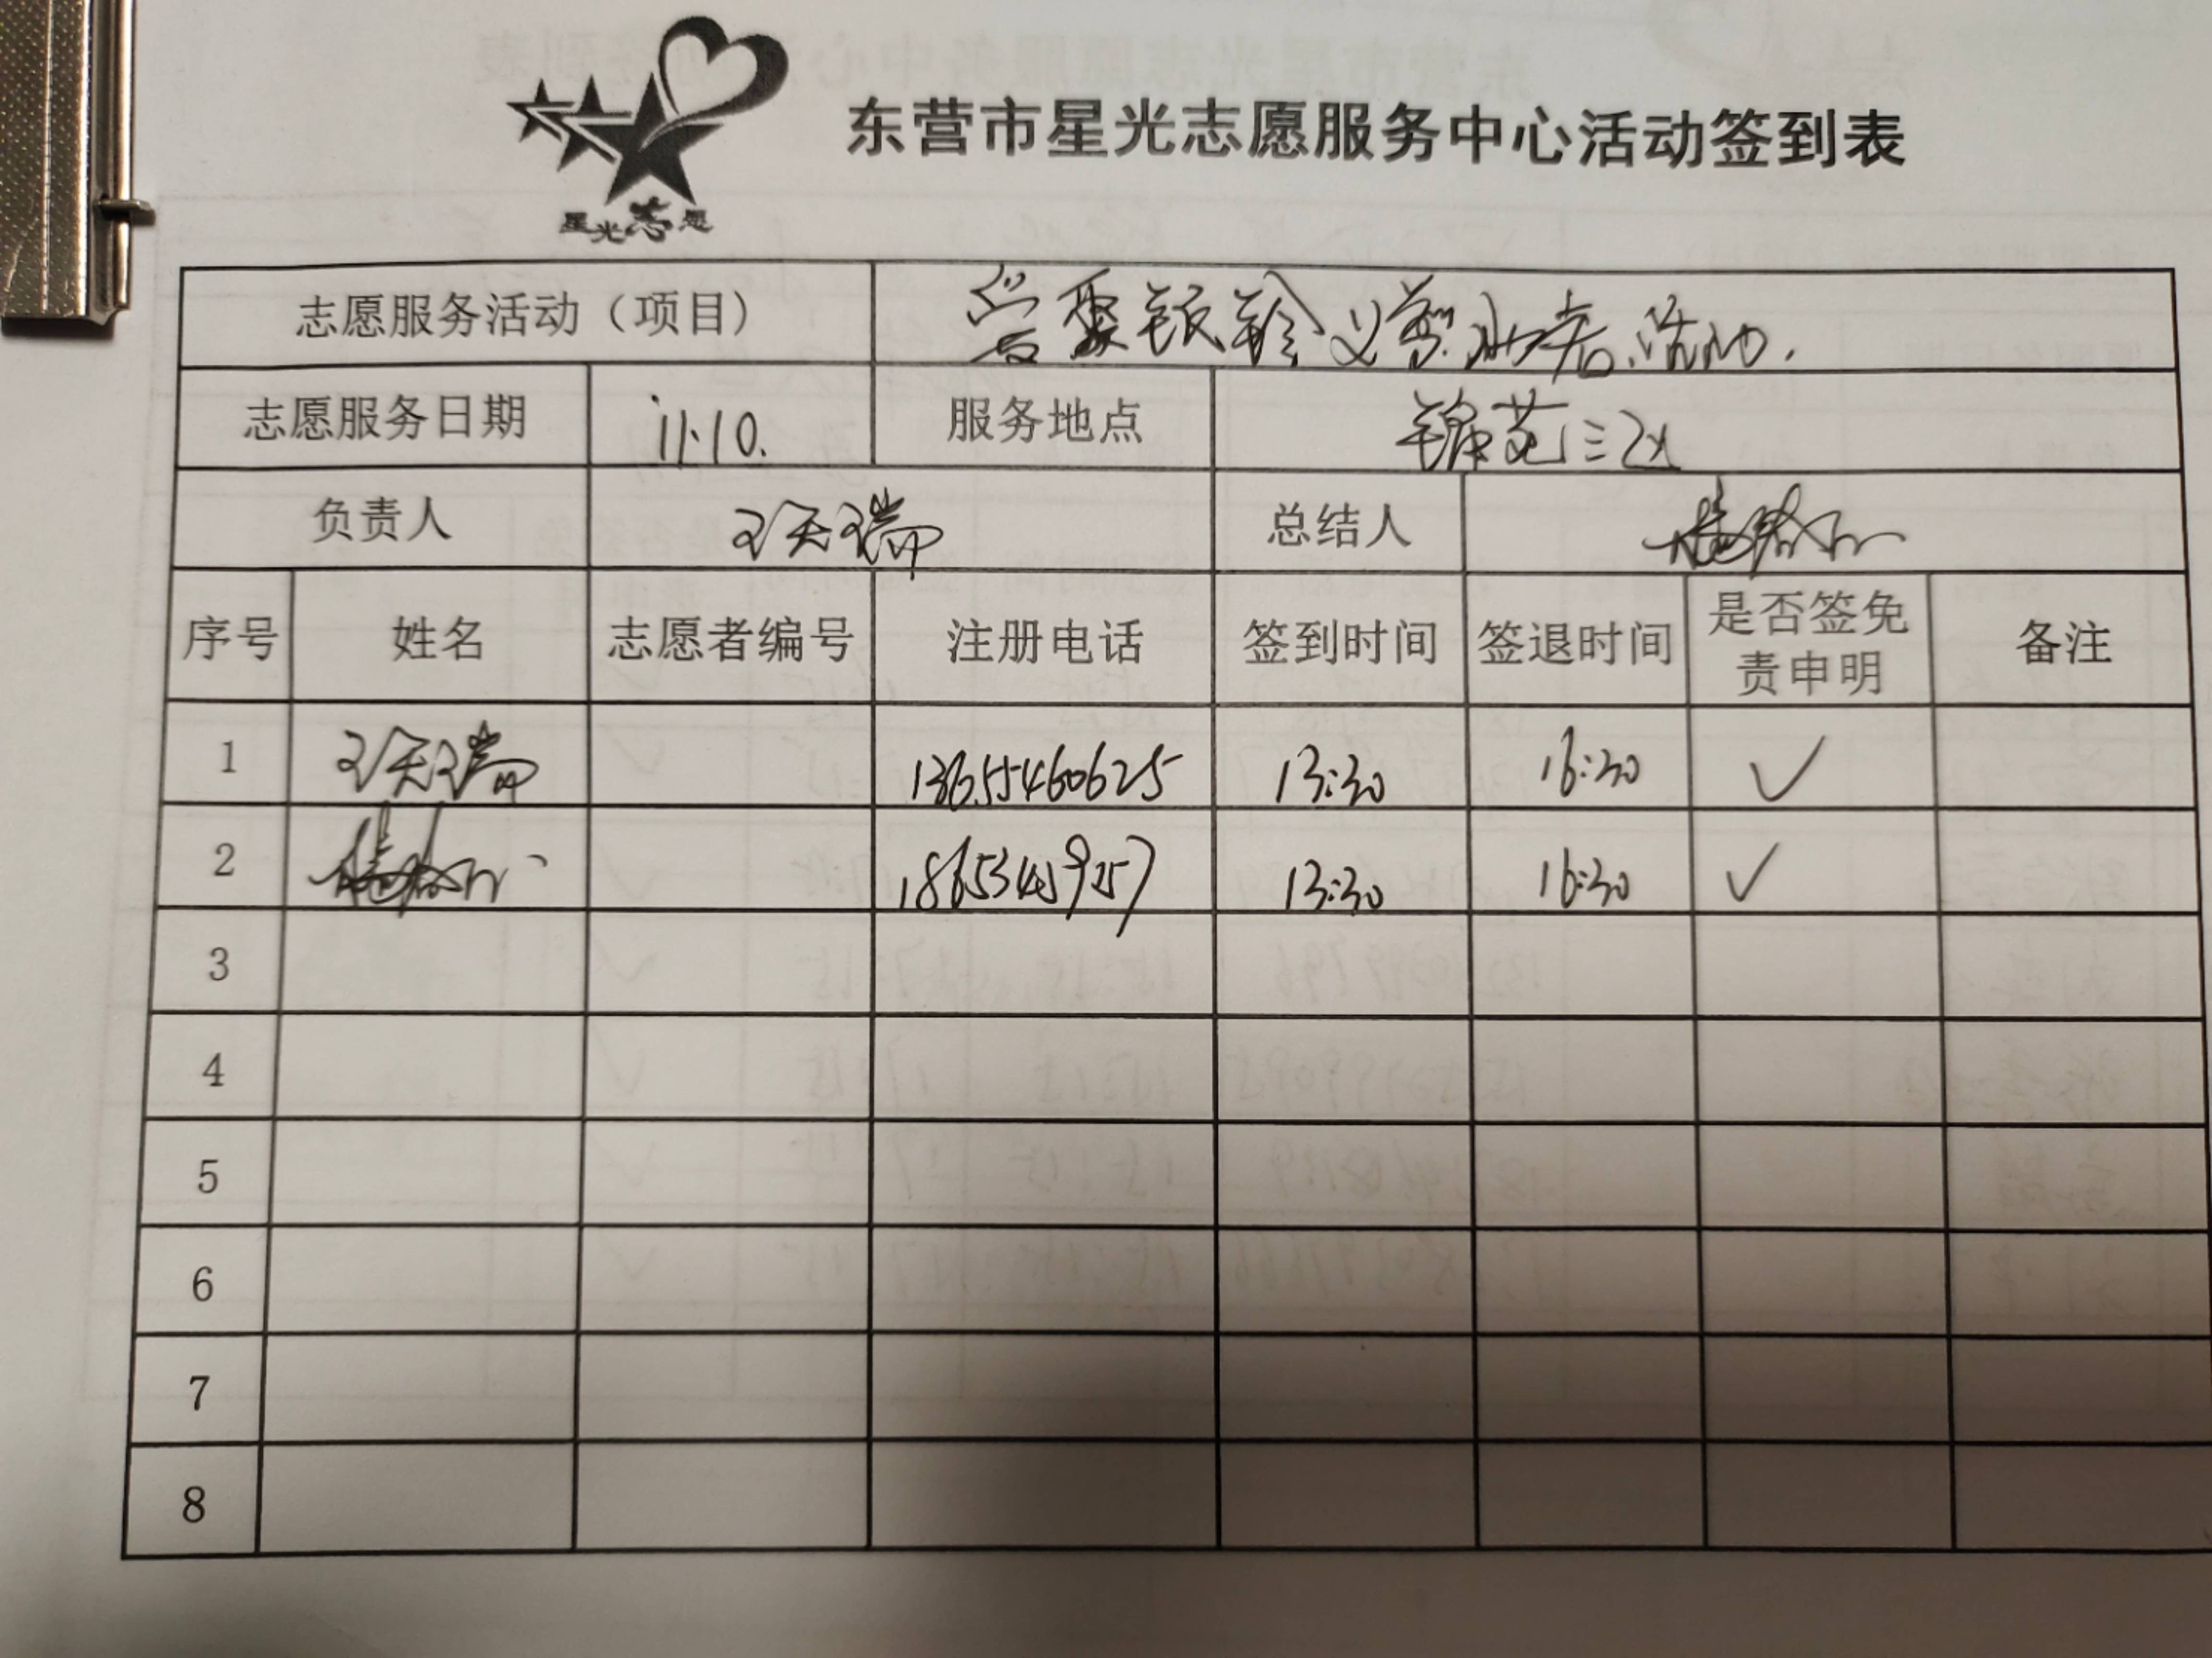 东营市星光志愿服务中心活动签到表
星光志愿
志愿服务活动（项目） 爱聚银龄义剪 活动.
志愿服务日期 11.10. 服务地点 锦苑三区
负责人 王天瑞 总结人
序号 姓名 志愿者编号 注册电话 签到时间 签退时间 是否签免责申明 备注
1 王天瑞 13655460625 13:30 16:30 ✓
2 13:30 16:30 ✓
3
4
5
6
7
8